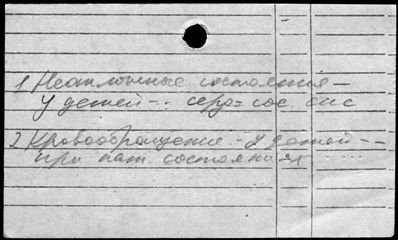 1 Неотложные состояния –
у детей – . серд= сос. сис
2 Кровообращение – у детей – –
при пат. состояниях